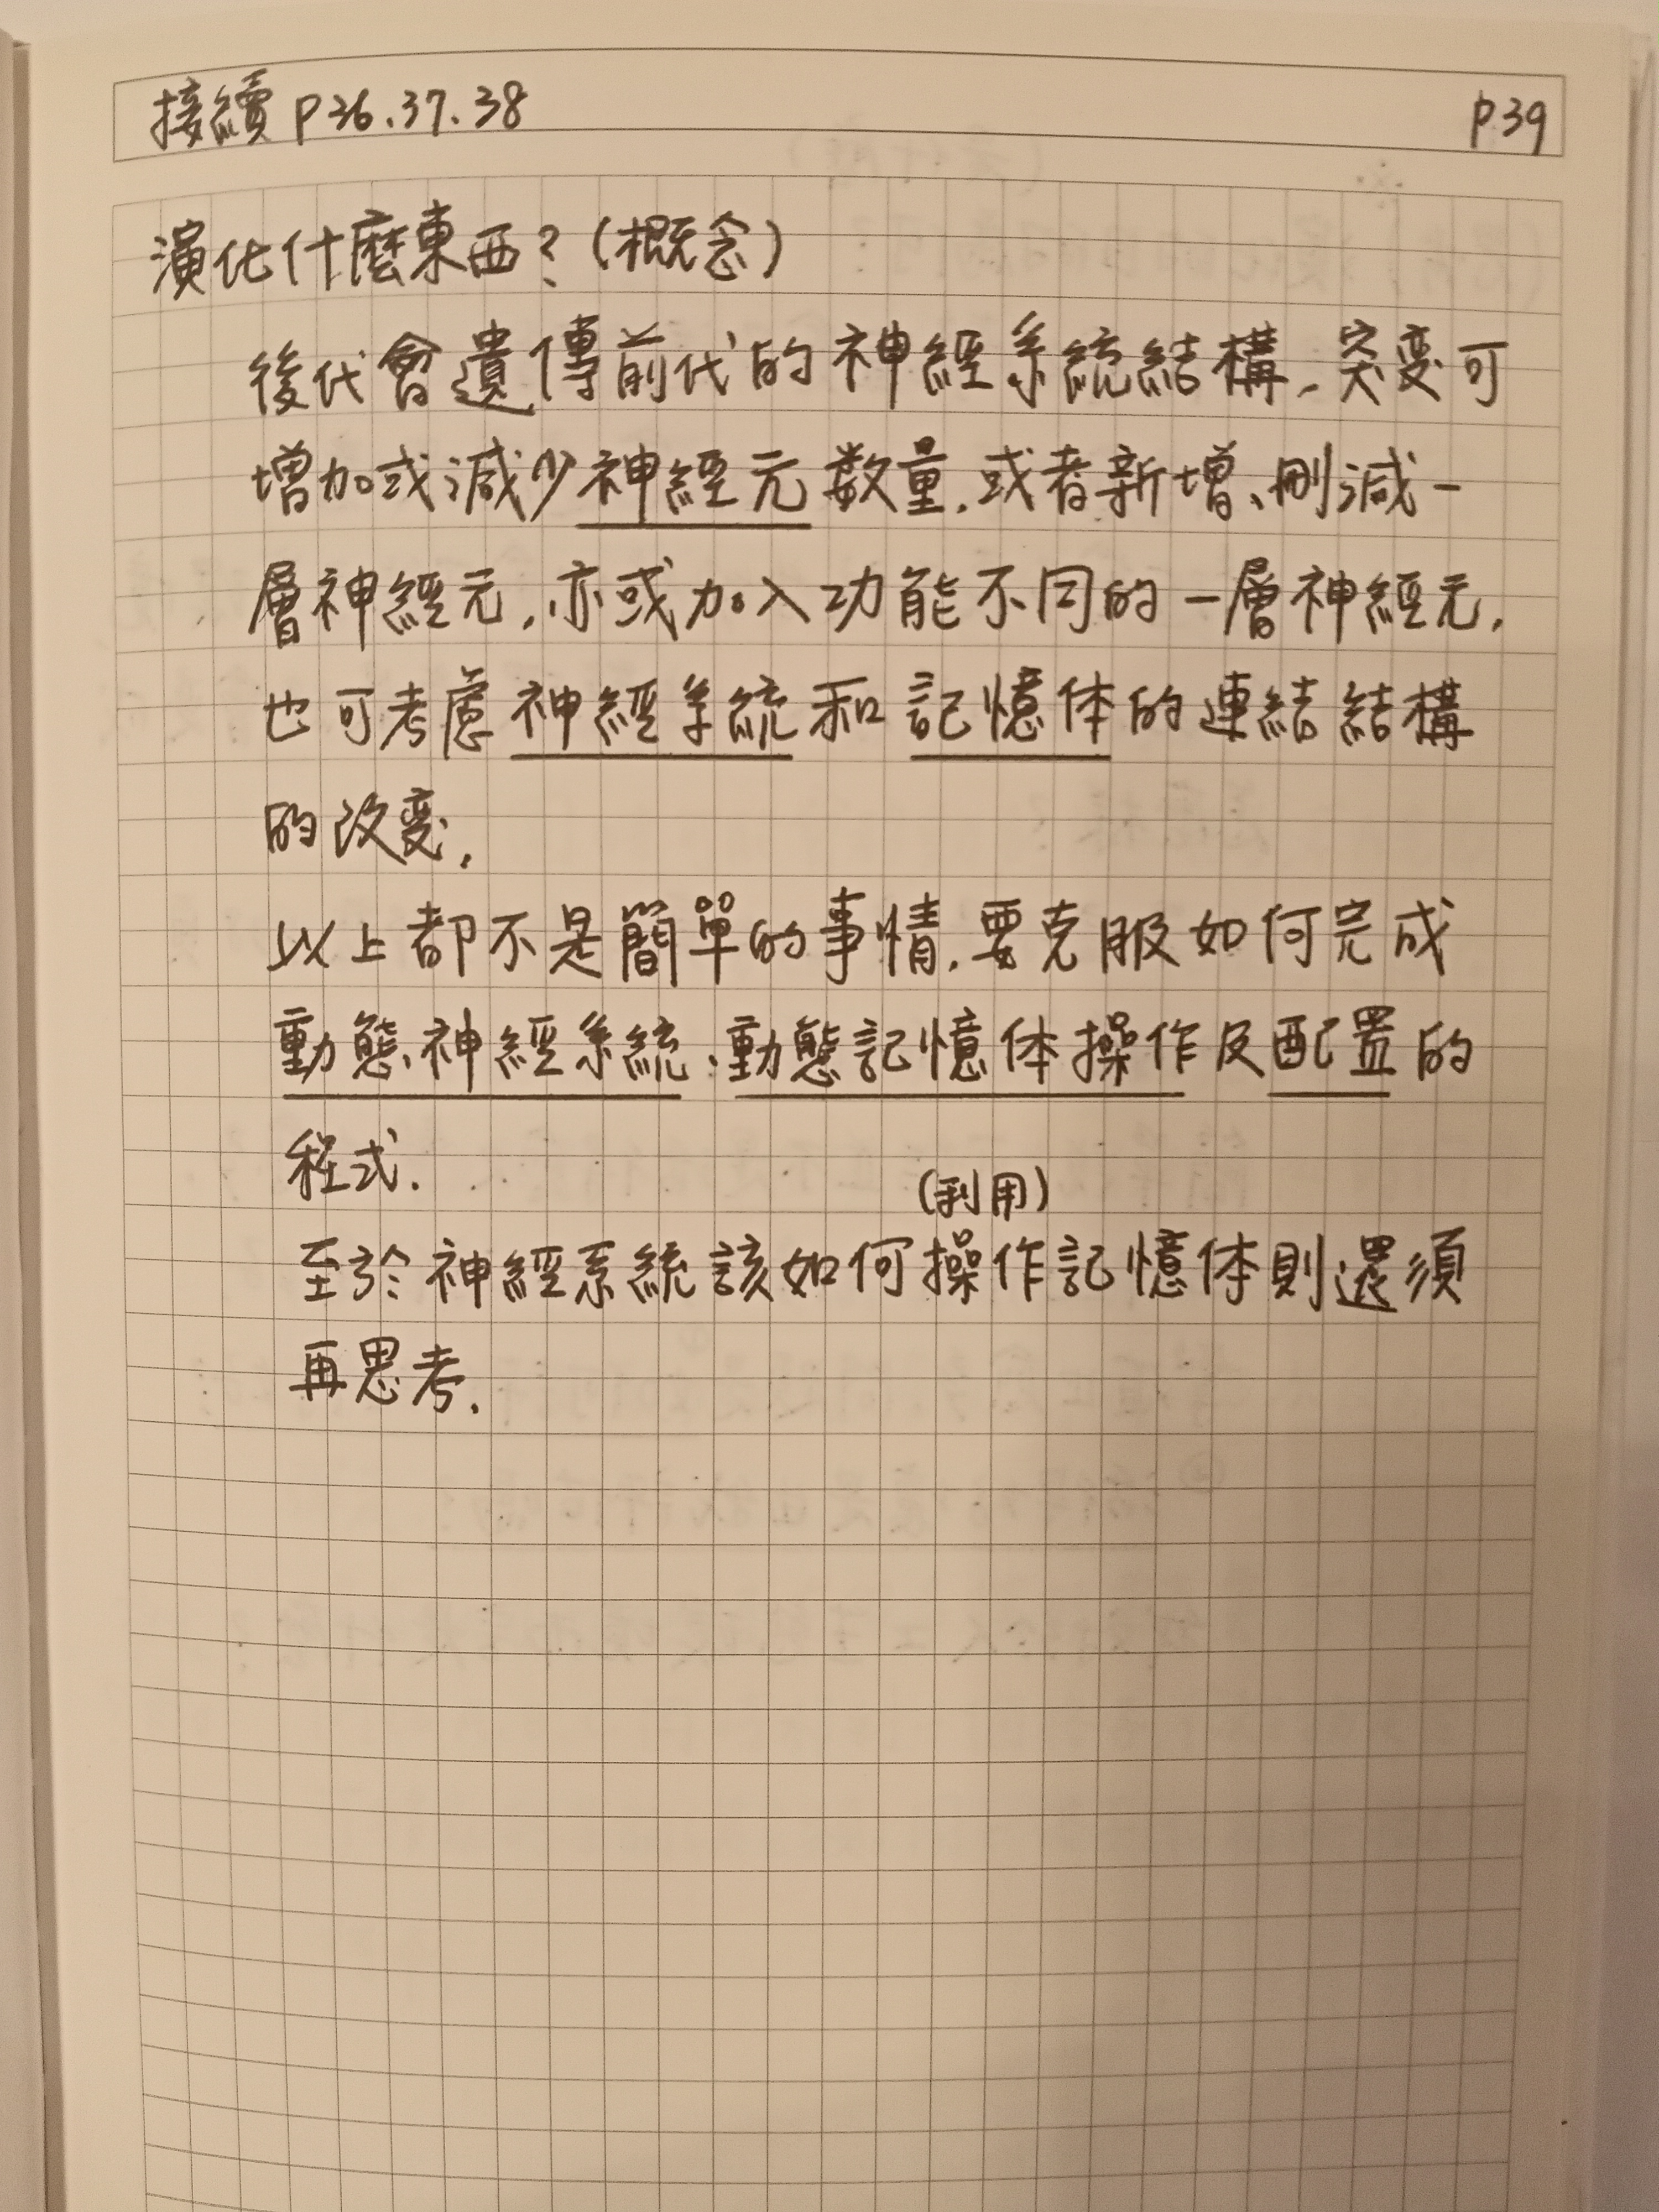 接續 P36.37.38
P.39
演化什麼東西?(概念)
後代會遺傳前代的神經系統結構,突变可
增加或減少神經元数量,或者新增、刪減一
層神經元,亦或加入功能不同的一層神經元,
也可考慮神經系統和記憶体的連結結構
的改变.
以上都不是簡單的事情,要克服如何完成
動態神經系統、動態記憶体操作及配置的
程式.
(利用)
至於神經系統該如何操作記憶体則還須
再思考.